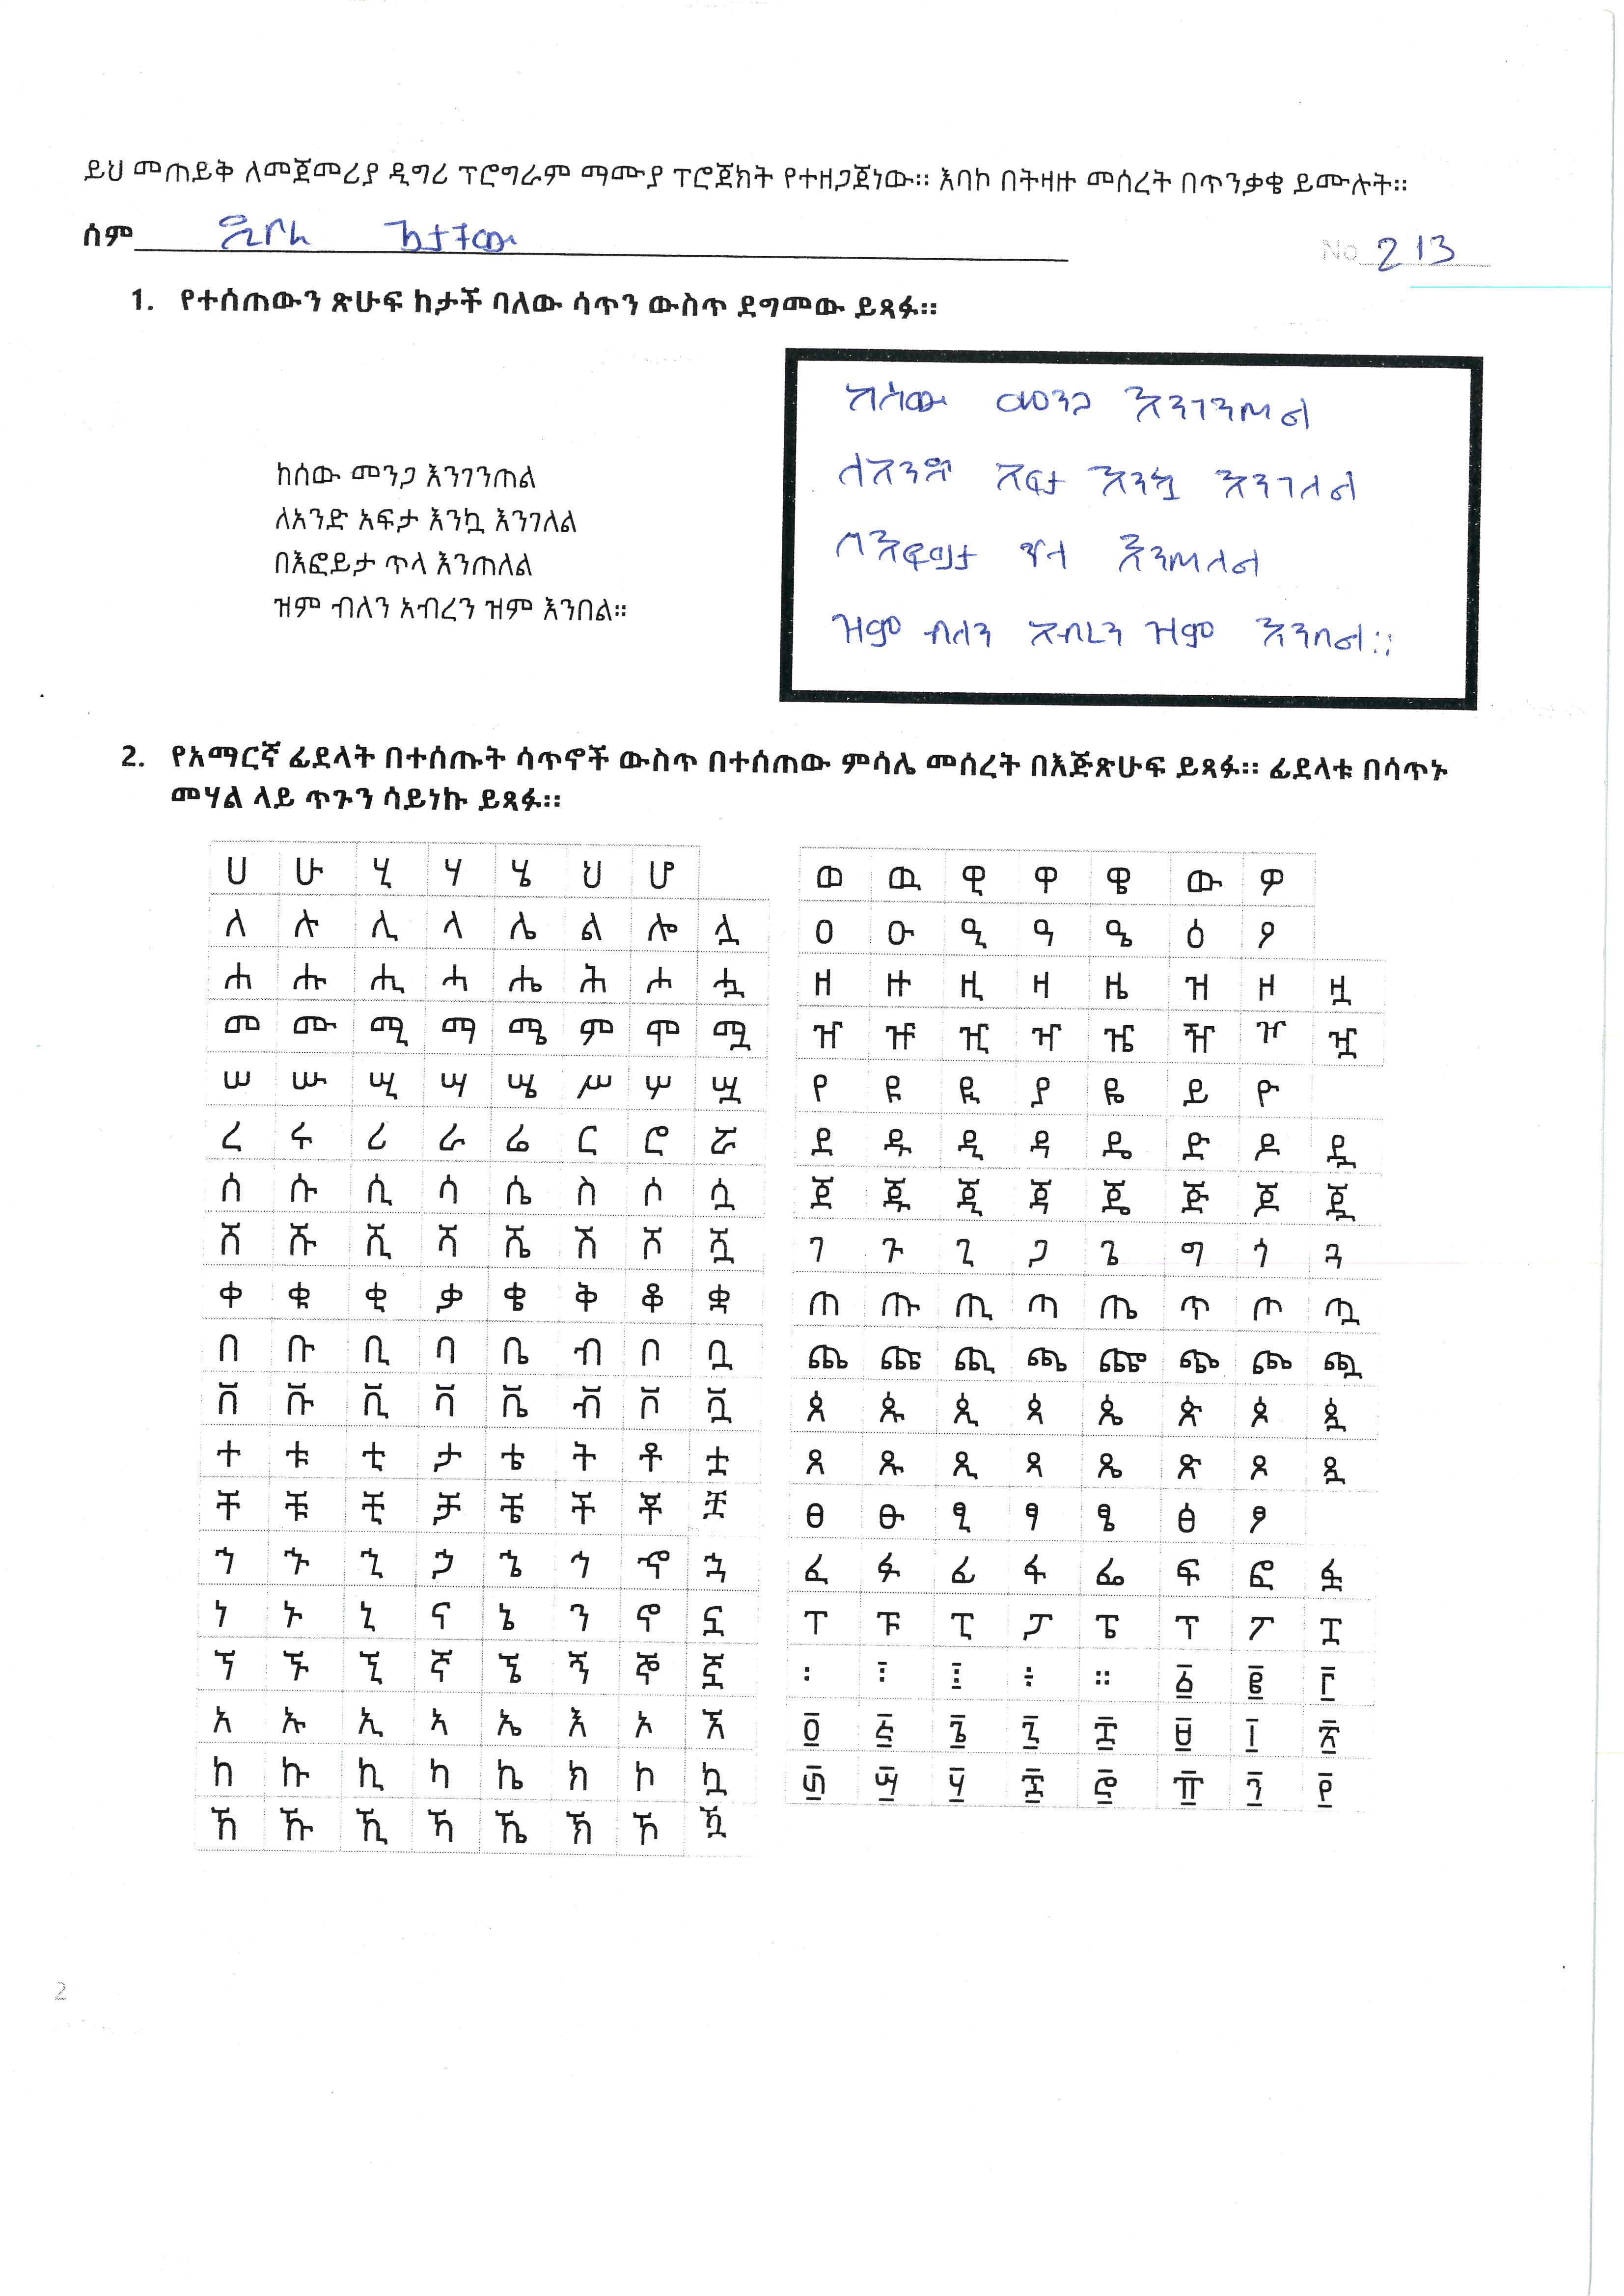 ይህ መጠይቅ ለመጀመሪያ ዲግሪ ፕሮግራም ማሙያ ፕሮጀክት የተዘጋጀነው። እባኮ በትዛዙ መሰረት በጥንቃቄ ይሙሉት።
ስም
No 213
1. የተሰጠውን ጽሁፍ ከታች ባለው ሳጥን ውስጥ ደግመው ይጻፉ።
ከሰው መንጋ እንገንጠል
ለአንድ አፍታ እንኳ እንገለል
በእፎይታ ጥላ እንጠለል
ዝም ብለን አብረን ዝም እንበል።
ከሰው መንጋ እንገንጠል
ለአንድ አፍታ እንኳ እንገለል
በእፎይታ ጥላ እንጠለል
ዝም ብለን አብረን ዝም እንበል።
2. የአማርኛ ፊደላት በተሰጡት ሳጥኖች ውስጥ በተሰጠው ምሳሌ መሰረት በእጅጽሁፍ ይጻፉ። ፊደላቱ በሳጥኑ
መሃል ላይ ጥጉን ሳይነኩ ይጻፉ።
ሀ ሁ ሂ ሃ ሄ ህ ሆ
ለ ሉ ሊ ላ ሌ ል ሎ ሏ
ሐ ሑ ሒ ሓ ሔ ሕ ሖ ሗ
መ ሙ ሚ ማ ሜ ም ሞ ሟ
ሠ ሡ ሢ ሣ ሤ ሥ ሦ ሧ
ረ ሩ ሪ ራ ሬ ር ሮ ሯ
ሰ ሱ ሲ ሳ ሴ ስ ሶ ሷ
ሸ ሹ ሺ ሻ ሼ ሽ ሾ ሿ
ቀ ቁ ቂ ቃ ቄ ቅ ቆ ቋ
በ ቡ ቢ ባ ቤ ብ ቦ ቧ
ቨ ቩ ቪ ቫ ቬ ቭ ቮ ቯ
ተ ቱ ቲ ታ ቴ ት ቶ ቷ
ቸ ቹ ቺ ቻ ቼ ች ቾ ቿ
ኀ ኁ ኂ ኃ ኄ ኅ ኆ ኋ
ነ ኑ ኒ ና ኔ ን ኖ ኗ
ኘ ኙ ኚ ኛ ኜ ኝ ኞ ኟ
አ ኡ ኢ ኣ ኤ እ ኦ ኧ
ከ ኩ ኪ ካ ኬ ክ ኮ ኳ
ኸ ኹ ኺ ኻ ኼ ኽ ኾ ዃ
ወ ዉ ዊ ዋ ዌ ው ዎ
ዐ ዑ ዒ ዓ ዔ ዕ ዖ
ዘ ዙ ዚ ዛ ዜ ዝ ዞ ዟ
ዠ ዡ ዢ ዣ ዤ ዥ ዦ ዧ
የ ዩ ዪ ያ ዬ ይ ዮ
ደ ዱ ዲ ዳ ዴ ድ ዶ ዷ
ጀ ጁ ጂ ጃ ጄ ጅ ጆ ጇ
ገ ጉ ጊ ጋ ጌ ግ ጎ ጓ
ጠ ጡ ጢ ጣ ጤ ጥ ጦ ጧ
ጨ ጩ ጪ ጫ ጬ ጭ ጮ ጯ
ጰ ጱ ጲ ጳ ጴ ጵ ጶ ጷ
ጸ ጹ ጺ ጻ ጼ ጽ ጾ ጿ
ፀ ፁ ፂ ፃ ፄ ፅ ፆ
ፈ ፉ ፊ ፋ ፌ ፍ ፎ ፏ
ፐ ፑ ፒ ፓ ፔ ፕ ፖ ፗ
፡ ፣ ፤ ÷ ። ፩ ፪ ፫
፬ ፭ ፮ ፯ ፰ ፱ ፲ ፳
፴ ፵ ፶ ፷ ፸ ፹ ፺ ፻
2